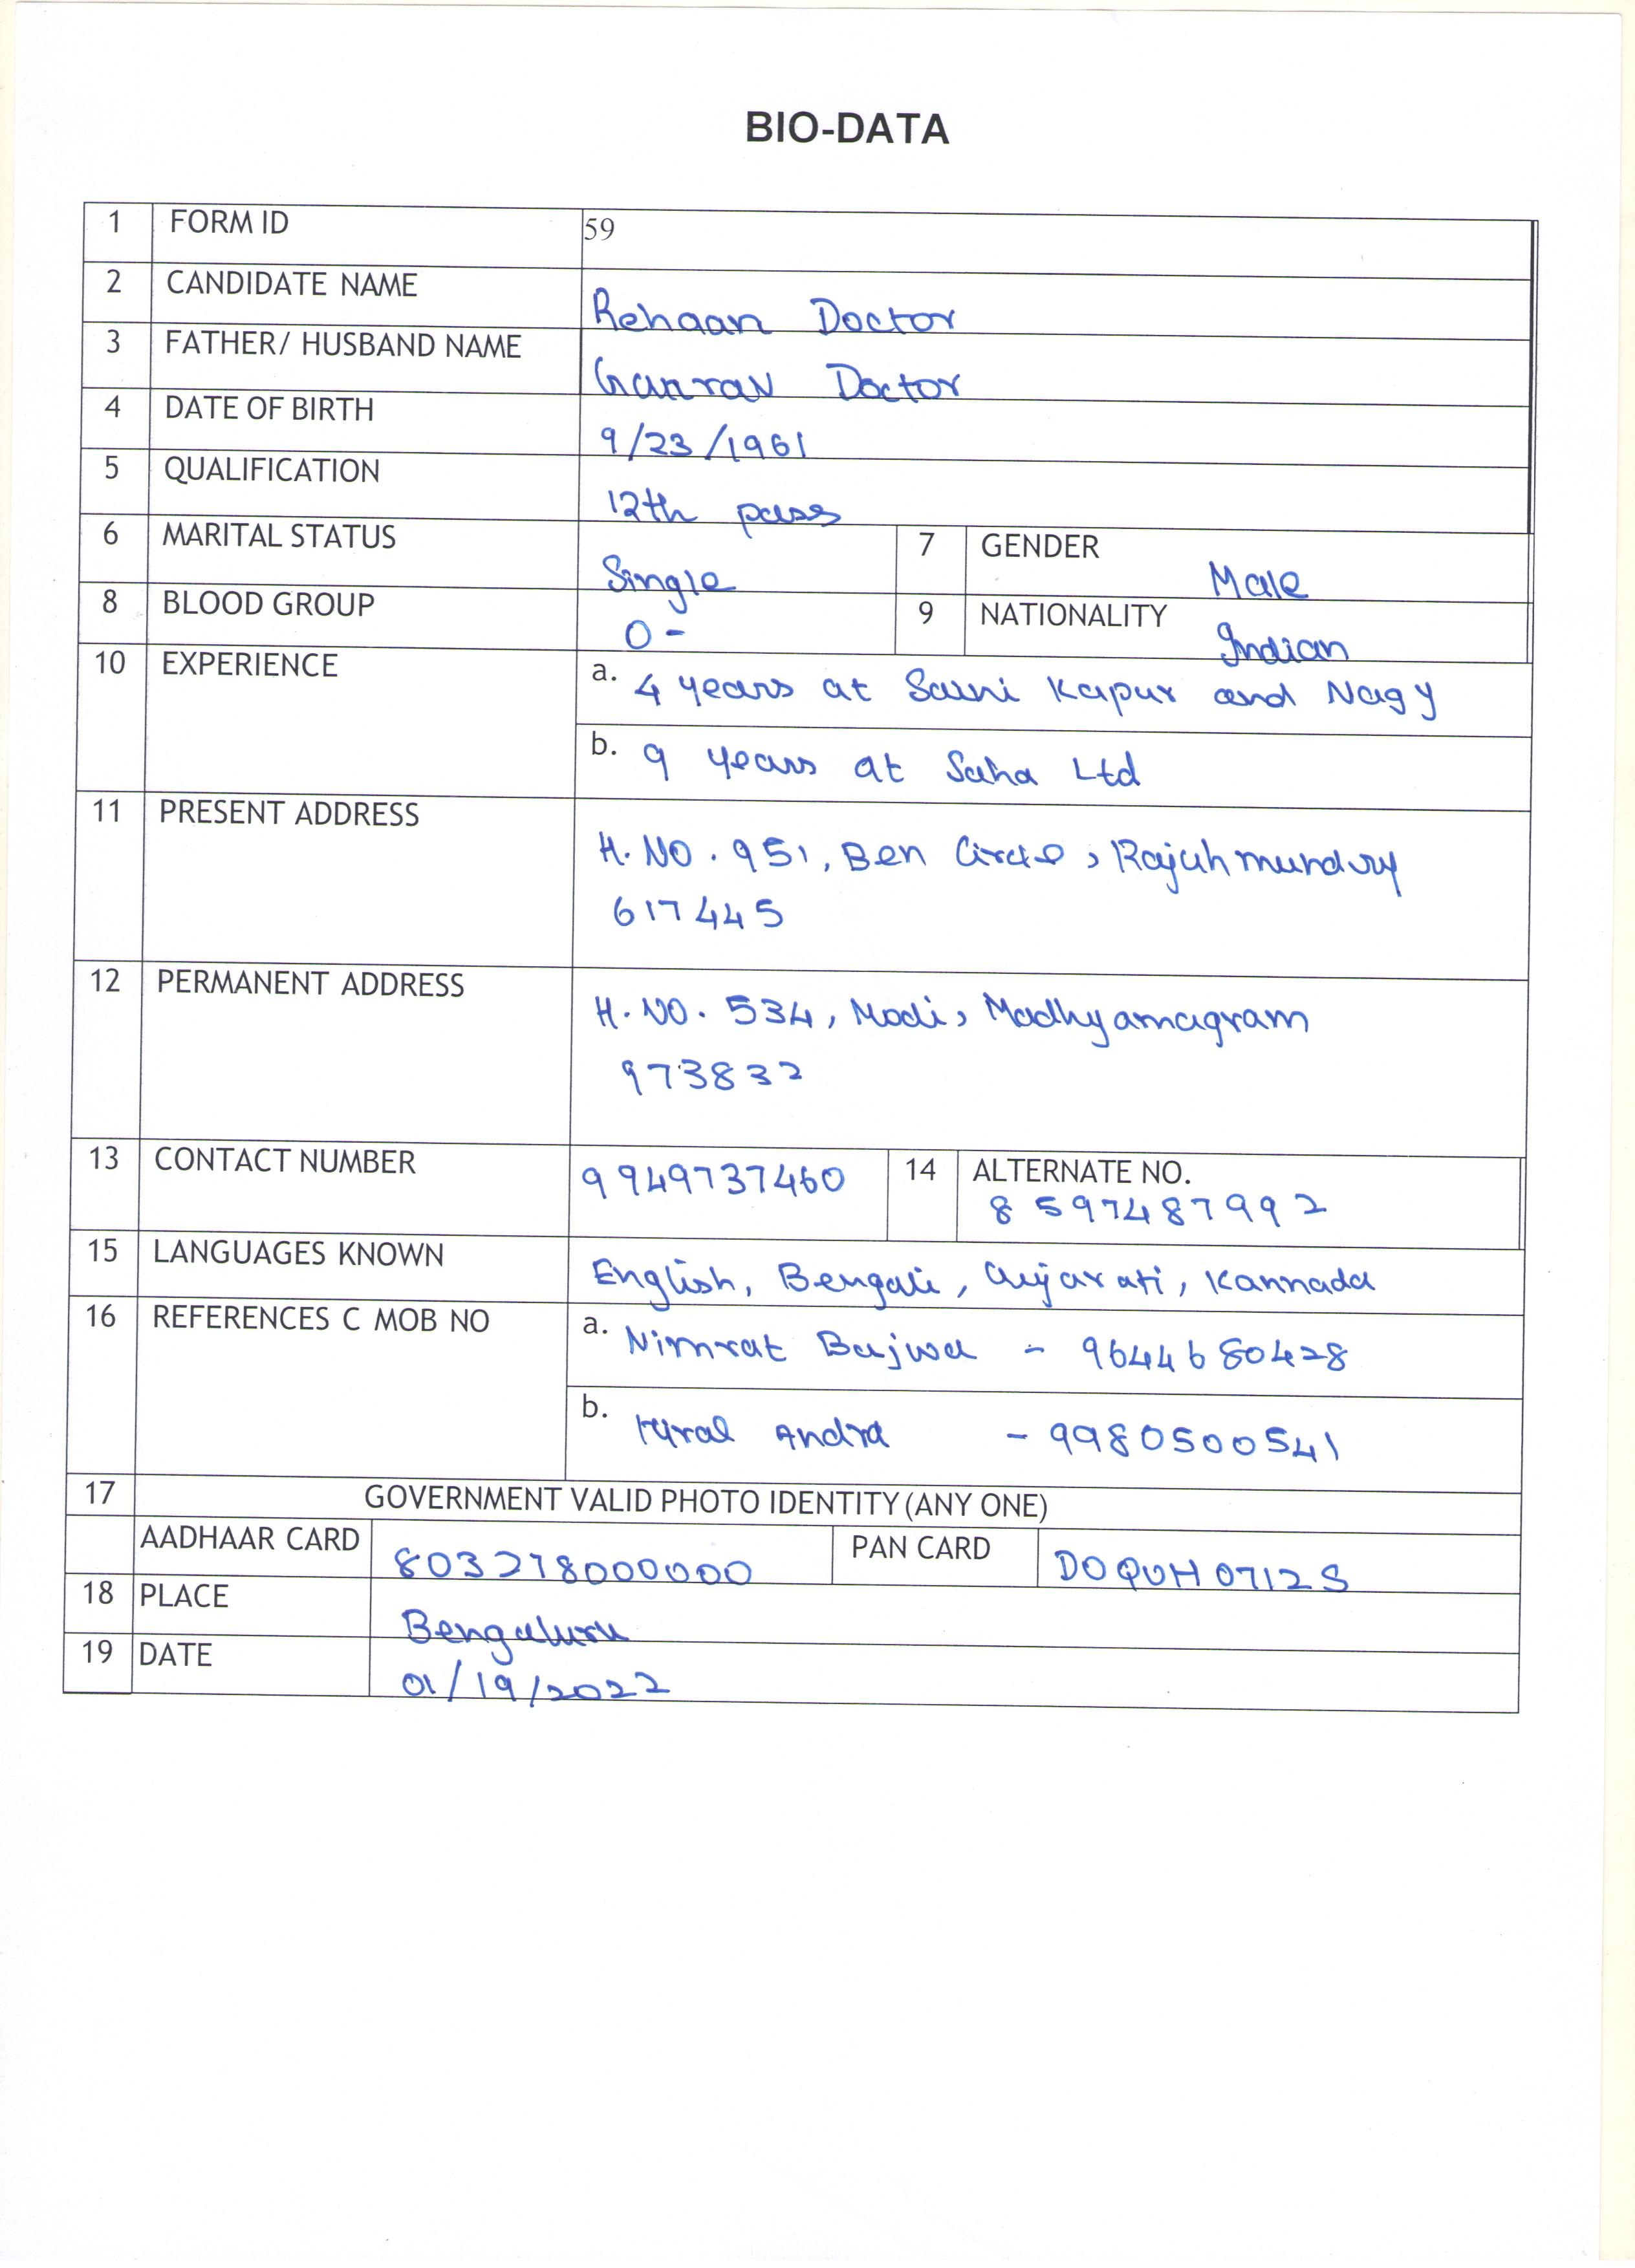 BIO-DATA
1 FORM ID 59
2 CANDIDATE NAME Rehaan Doctor
3 FATHER/ HUSBAND NAME Doctor
4 DATE OF BIRTH 9/23/1961
5 QUALIFICATION 12th pass
6 MARITAL STATUS Single 7 GENDER Male
8 BLOOD GROUP O- 9 NATIONALITY Indian
10 EXPERIENCE a. 4 years at Saini Kapur and Nagy
b. 9 years at Saha Ltd
11 PRESENT ADDRESS
H.NO. 951, Ben Circle, Rajahmundry
617445
12 PERMANENT ADDRESS
H.NO. 534, Modi, Madhyamagram
973832
13 CONTACT NUMBER 9949737460 14 ALTERNATE NO.
8597487992
15 LANGUAGES KNOWN English, Bengali, Gujarati, Kannada
16 REFERENCES C MOB NO a. Nimrat Bajwa - 9644680428
b. Andra - 9980500541
17 GOVERNMENT VALID PHOTO IDENTITY (ANY ONE)
AADHAAR CARD 803278000000 PAN CARD DOQUH0712S
18 PLACE Bengaluru
19 DATE 01/19/2022